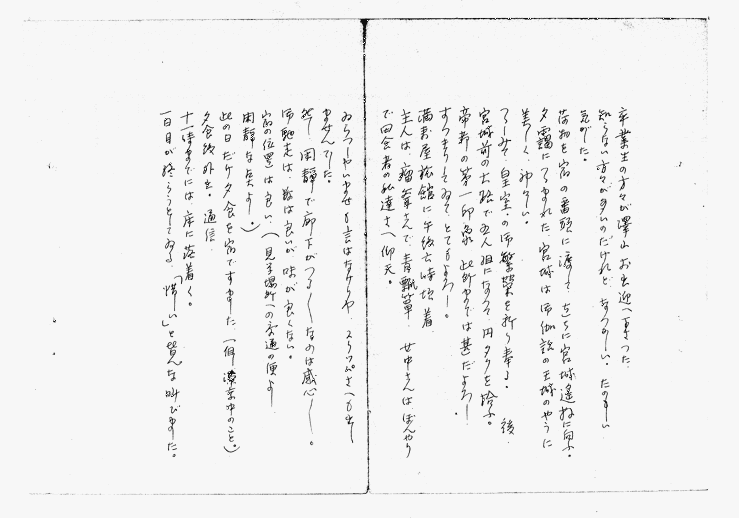 卒業生の方々が澤山お出迎へ下さつた
知らない方々が多いのだけれど、なつかしい、たのもしい
気がした。
荷物を宿の番頭に渡して直ちに宮城遙拝に向ふ。
夕靄につゝまれた宮城は御伽話の王城のやうに
美しく、神々しい。
つゝしみて皇室の御繁栄を祈り奉る。 後、
宮城前の大路で五人組になつて円タクを拾ふ。
帝都の第一印象、此所までは甚だよろし
すつきりしてゐてとてもよろし。
満寿屋旅館に午後六時頃着
主人は瘤 さんで青瓢箪、女中さんはぼんやり
で田舎者の私達さへ仰天。
ゐらつしやいませも言はなければ、スリッパさへも出し
ませんでした。
然し閑静で廊下がつる〱なのは感心〱。
御馳走は、数は良いが味が良くない。
宿の位置は良い、(見学場所への交通の便よし
閑静な点よし。)
此の日だけ夕食を宿ですました(但滞京中のこと。)
夕食後外出。通信
十一時までには床に落着く。
一日目が終らうとしてゐる。「惜しい」と皆んな叫びました。